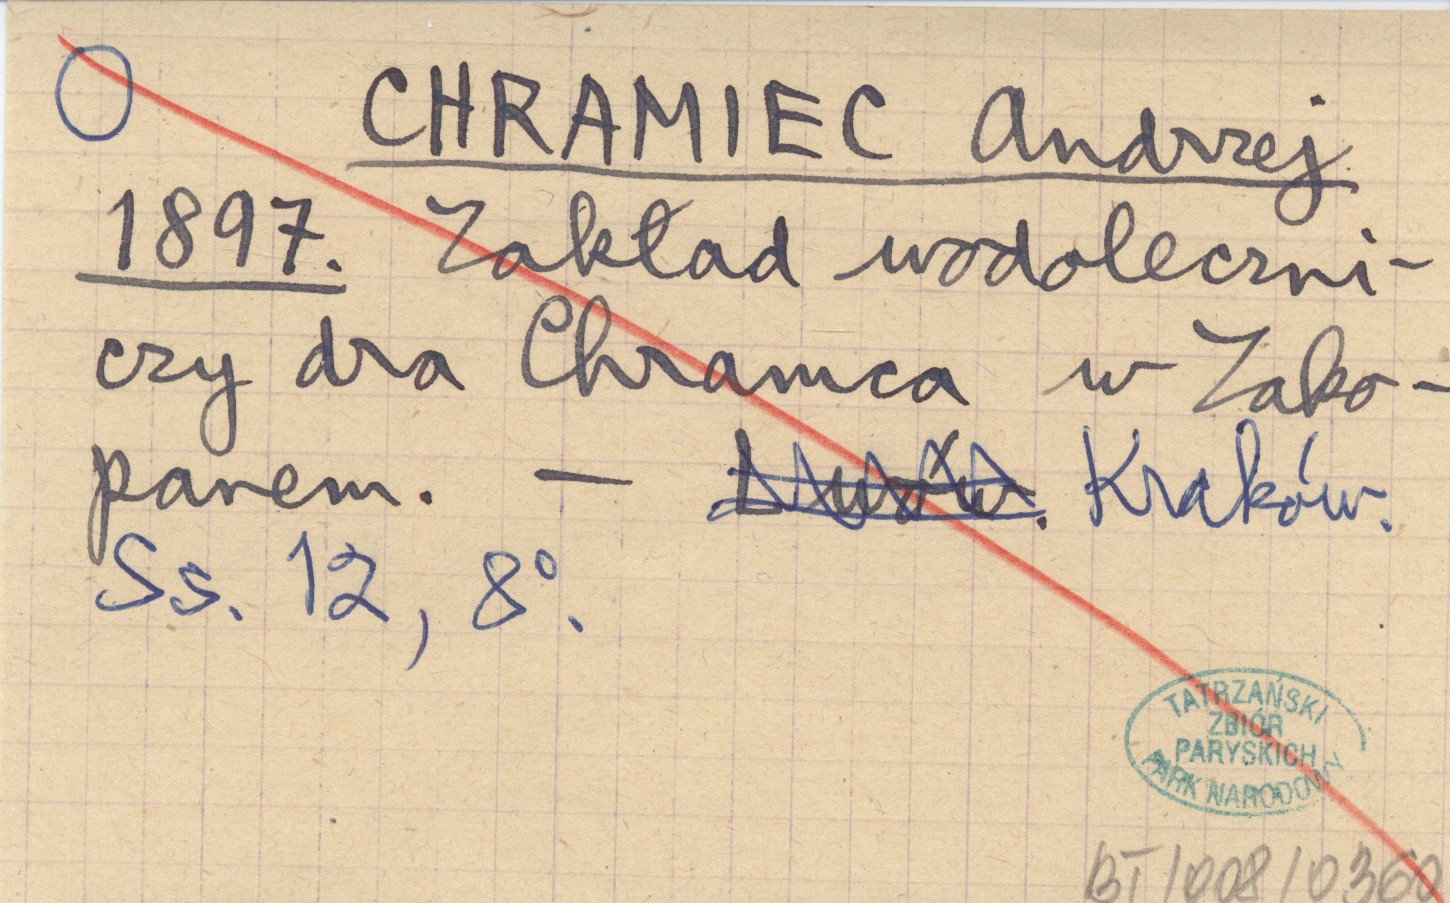 CHRAMIEC Andrzej
1897. Zakład wodoleczni-
czy dra Chramca w Zako-
panem. — Lwów. Kraków.
Ss. 12, 8°.
TATRZAŃSKI
ZBIÓR
PARYSKICH
PARK NARODOWY
BT/008/0360